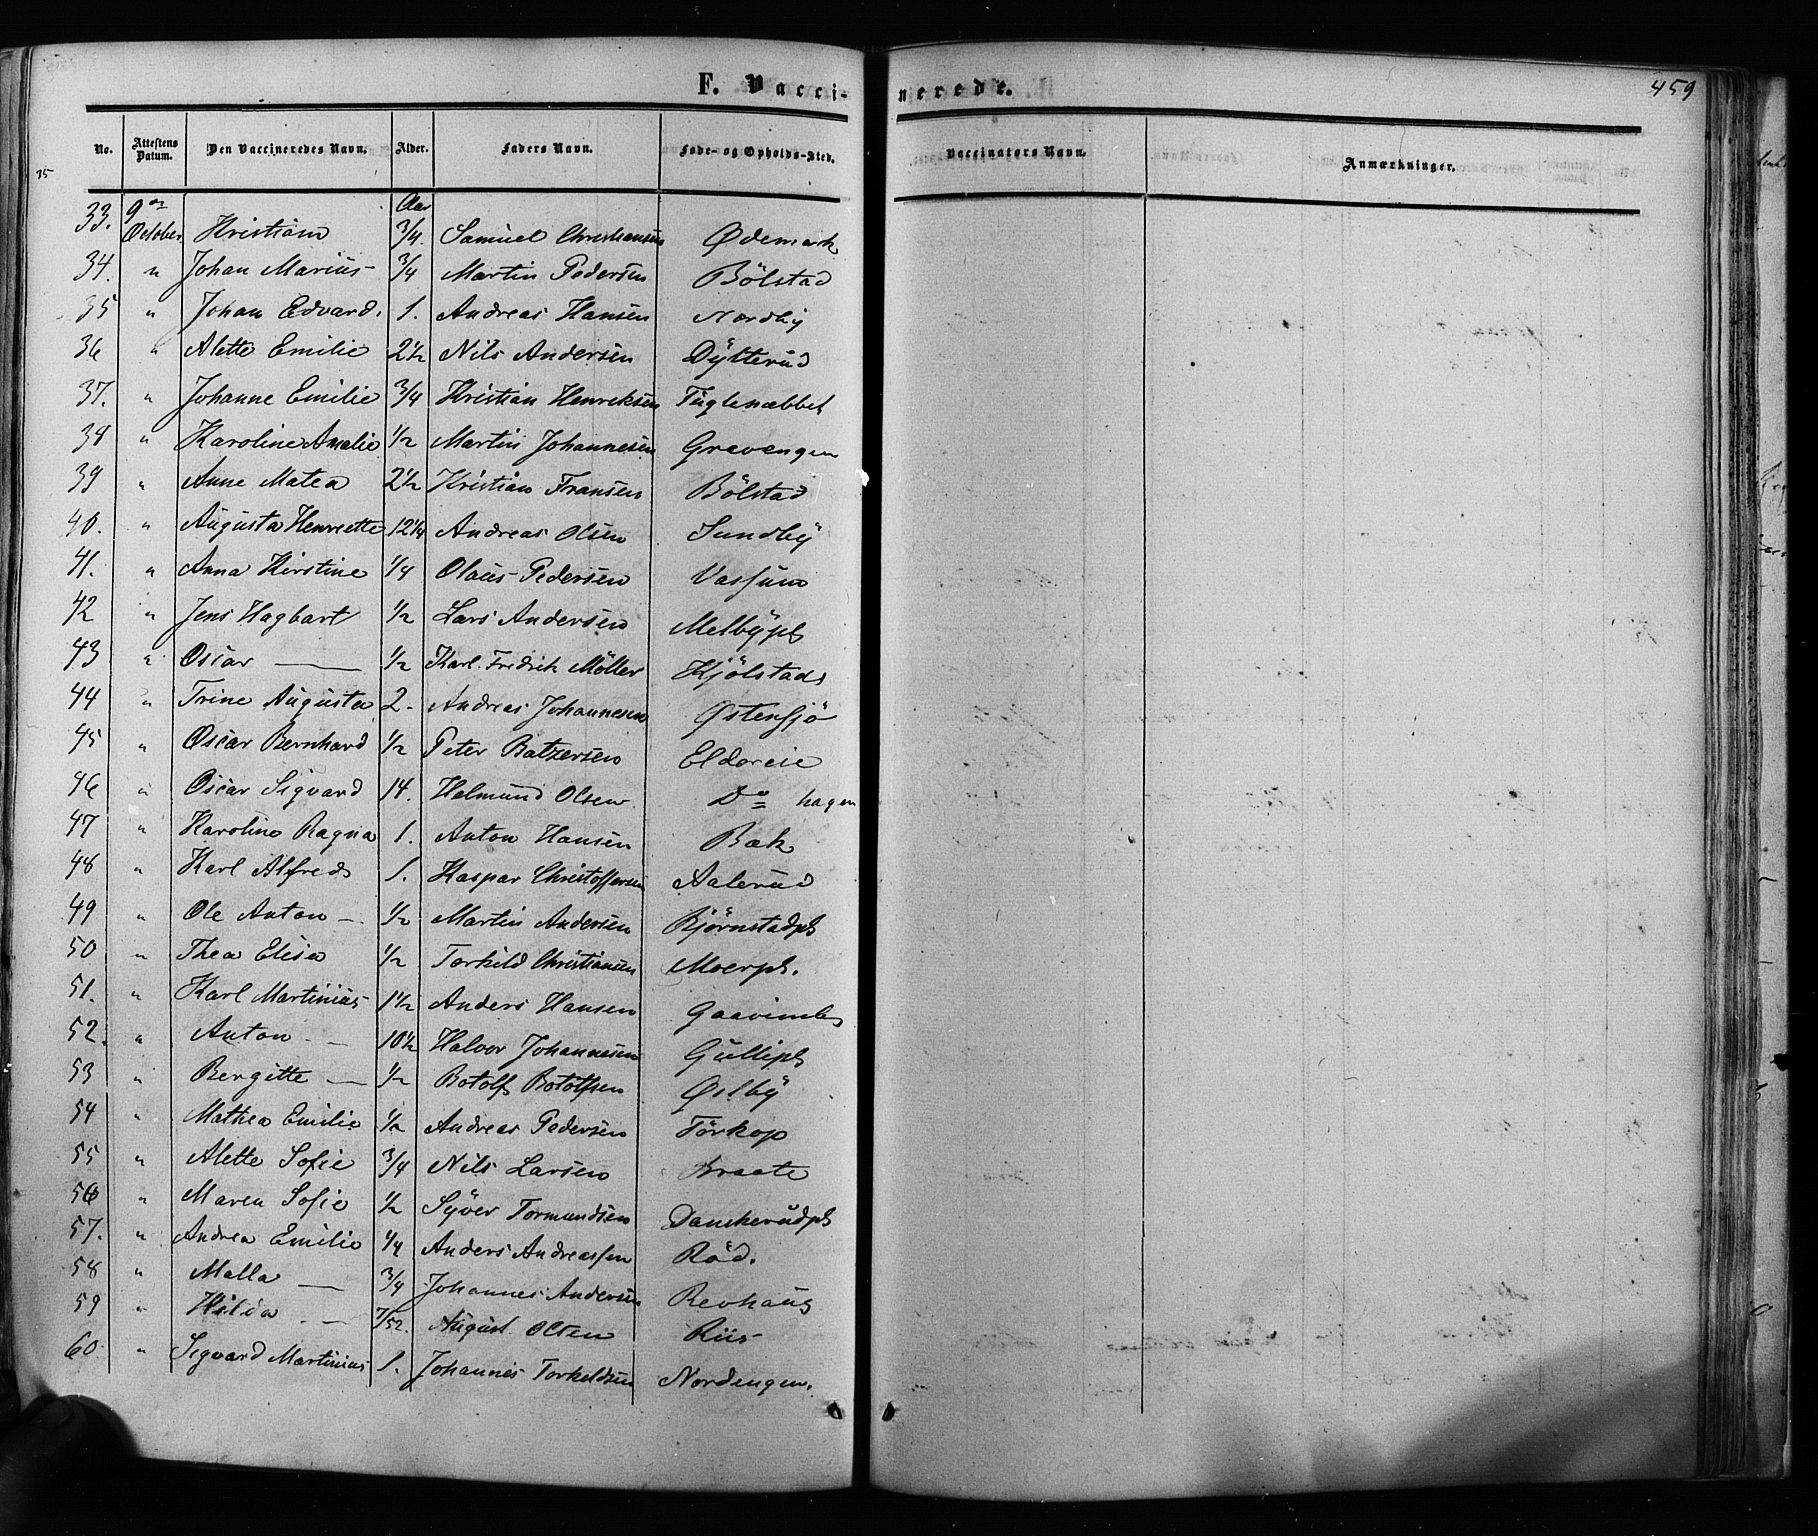 F. Vaccinerede.
459
No. Attestens Datum. Den Vaccineredes Navn. Alder. Faders Navn. Føde- og Opholds-Sted. Vaccinators Navn. Anmærkninger.
35
Aar
33. 9de October Kristian 3/4. Samuel Christiansen Ødemark
34. " Johan Marius 3/4 Martin Pedersen Bölstad
35 " Johan Edvard. 1. Andreas Hansen Nordby
36 " Alette Emilie 2 1/2 Nils Andersen Dytterud
37. " Johanne Emilie 3/4 Kristian Henriksen Tuglenæbbet
38 " Karoline Amalie 1/2 Martin Johannesen Gravengen
39 " Anne Matea 2 1/2 Kristian Fransen Bölstad
40. " Augusta Henriette 12 1/4 Andreas Olsen Sundby
41. " Anna Kirstine 1/4 Olaus Pedersen Vassum
42 " Jens Hagbart 1/2 Lars Andersen Melbypl
43 " Oscar — 1/2 Karl Fredrik Möller Kjölstad
44 " Trine Augusta 2. Andreas Johannesen Østensjö
45 " Oscar Bernhard 1/2 Peter Baltzersen Eldoreie
46 " Oscar Sigvard 14. Halmund Olsen Do hagen
47 " Karoline Ragna 1. Anton Hansen Bæk
48 " Karl Alfred 1. Kaspar Christoffersen Aalerud
49 " Ole Anton — 1/2 Martin Andersen Bjørnstadpl
50 " Thea Elisa 1/2 Torkild Christiansen Moerpl.
51. " Karl Martinius 1 1/2 Anders Hansen
52. " Anton — 10 1/2 Halvor Johannesen Gullipl
53 " Bergitte — 1/2 Botolf Botolfsen Øslby
54 " Mathea Emilie 1/2 Andreas Pedersen Torkop
55 " Alette Sofie 3/4 Nils Larsen Braate
56 " Maren Sofie 1/2 Syver Tormundsen Danskerudpl
57. " Andrea Emilie 1/4 Anders Andreassen Röd.
58 " Malla — 3/4 Johannes Andersen Revhaug
59 " Hilda — 7/52. August Olsen Riis
60. " Sigvard Martinius 1. Johannes Torkeldsen Nordengen.